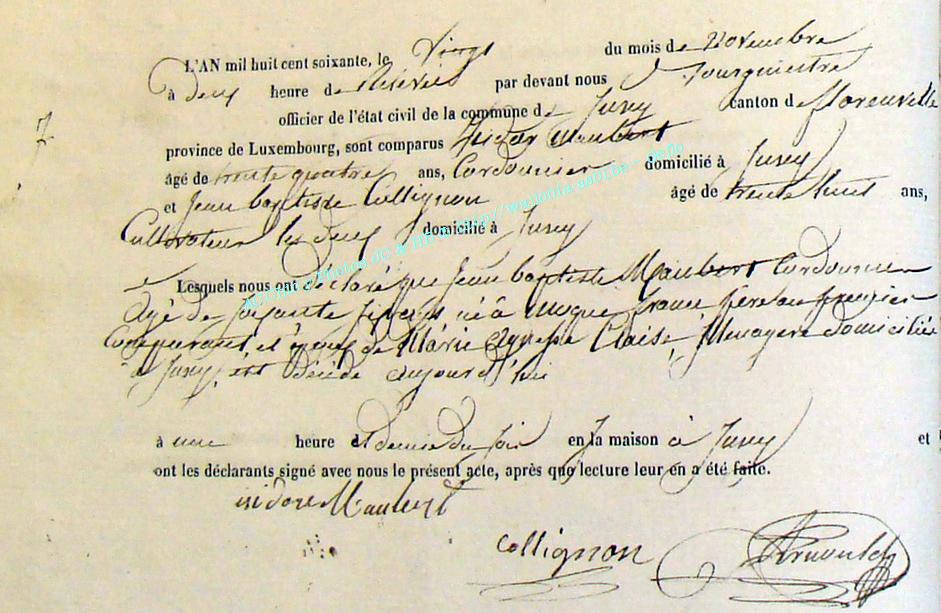 L'AN mil huit cent soixante, le Vingt du mois de Novembre
à deux heure de Relevée par devant nous
officier de l'état civil de la commune de Juzey canton de
province de Luxembourg, sont comparus Isidor Maubert
âgé de trente quatre ans, Cordonnier domicilié à Juzey
et Jean baptiste Collignon âgé de trente huit ans,
Cultivateur les deux domicilié à Juzey
Lesquels nous ont déclaré que Jean baptiste Maubert Cordonnier
Agé de soixante six ans né à france père au premier
Comparant, et époux de Marie Agnesse Claise, Menagere domiciliée
à Juzey, est décédé aujourd'hui
à une heure et demie du soir en la maison à Juzey et
ont les déclarants signé avec nous le présent acte, après que lecture leur en a été faite.
isidore Maubert
Collignon
7